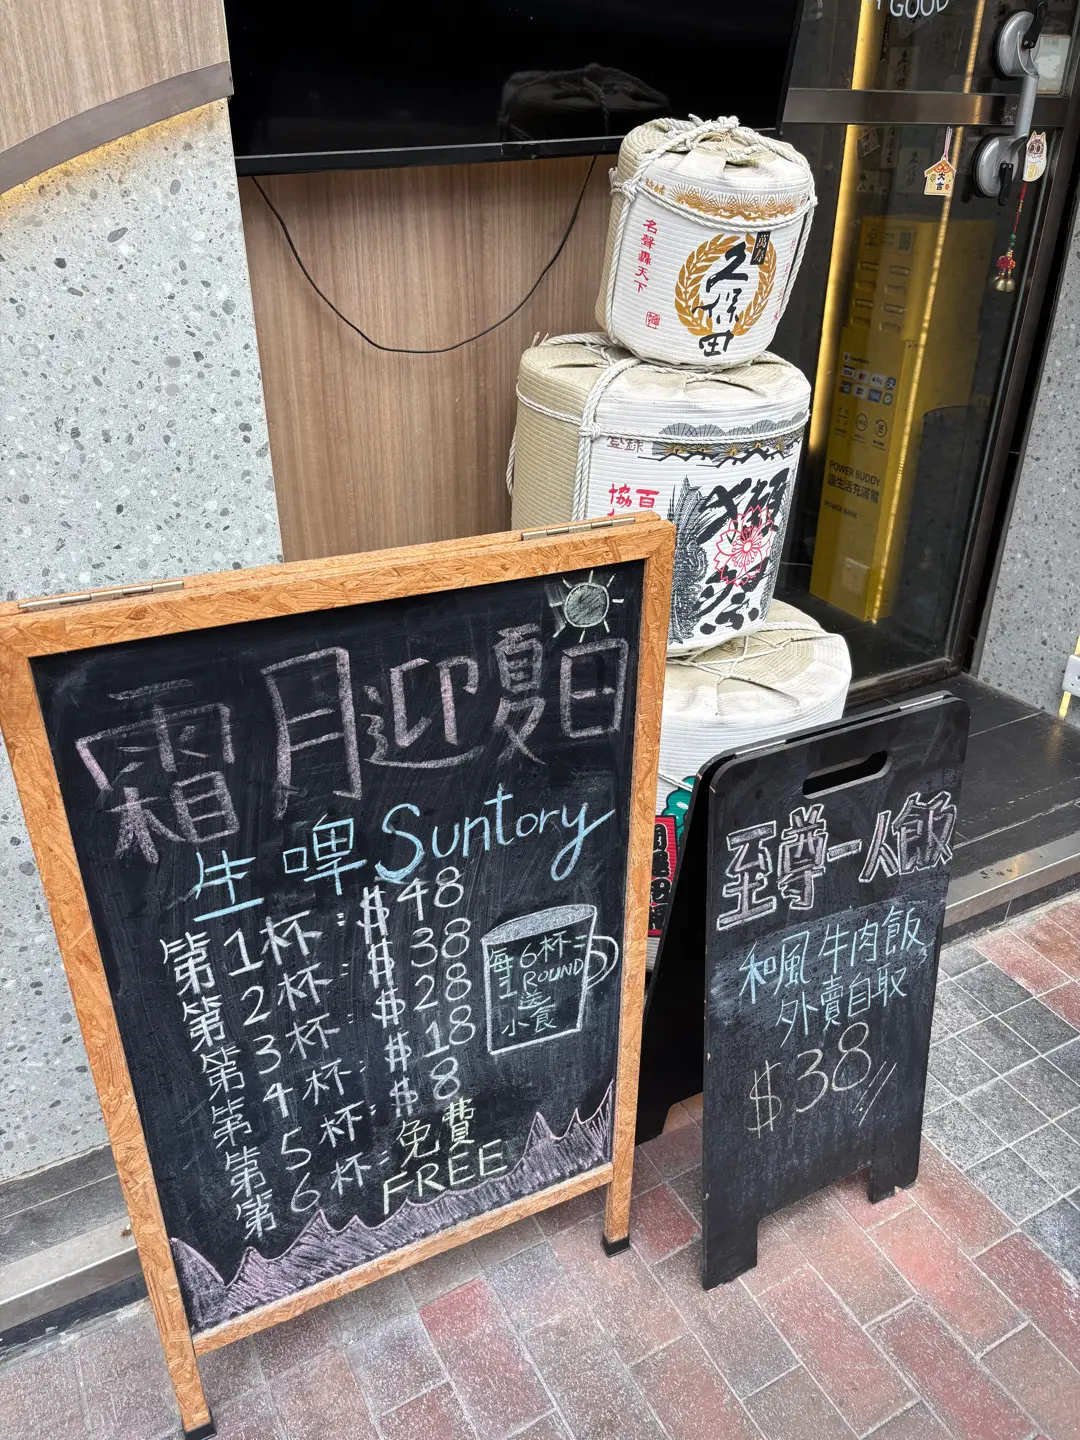 霜月迎夏日
生啤 Suntory
第1杯：$48
第2杯：$38
第3杯：$28
第4杯：$18
第5杯：$8
第6杯：免費
FREE
每6杯=
1 ROUND
送
小食
至尊一人飯
和風牛肉飯
外賣自取
$38
名聲轟天下
久保田
萬寿
登録
百
協
大吉
GOOD
POWER BUDDY
讓生活充滿電
POWER BANK